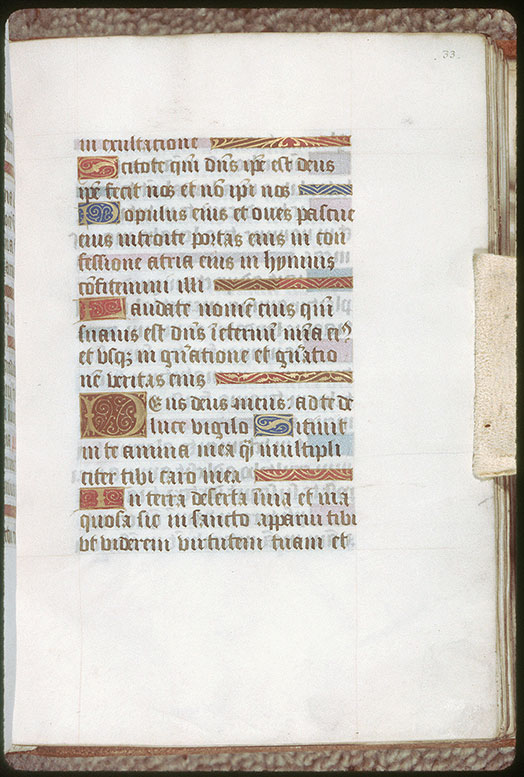 33.
in exultacione
Scitote qm̄ dn̄s ip̄e est deus
ip̄e fecit nos et nō ip̄i nos
Populus eius et oues pascue
eius introite portas eius in con
fessione atria eius in hymnis
cōfitemini illi
Laudate nomē eius qm̄
suauis est dn̄s ī eternū mīa eiꝰ
et vsqꝫ in gn̄atione et gn̄atio
nē veritas eius
Deus deus meus ad te de
luce vigilo Sitiuit
in te anima mea qͣ multipli
citer tibi caro mea
In terra deserta inuia et ina
quosa sic in sancto apparui tibi
vt viderem virtutem tuam et